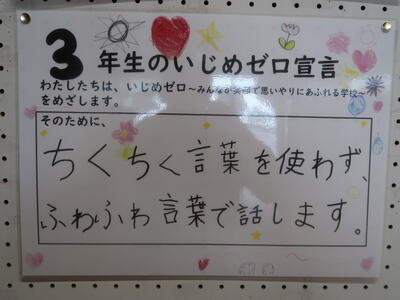 3年生のいじめゼロ宣言
わたしたちは、いじめゼロ~みんなが笑顔で思いやりにあふれる学校~
をめざします。
そのために、
ちくちく言葉を使わず、
ふわふわ言葉で話します。